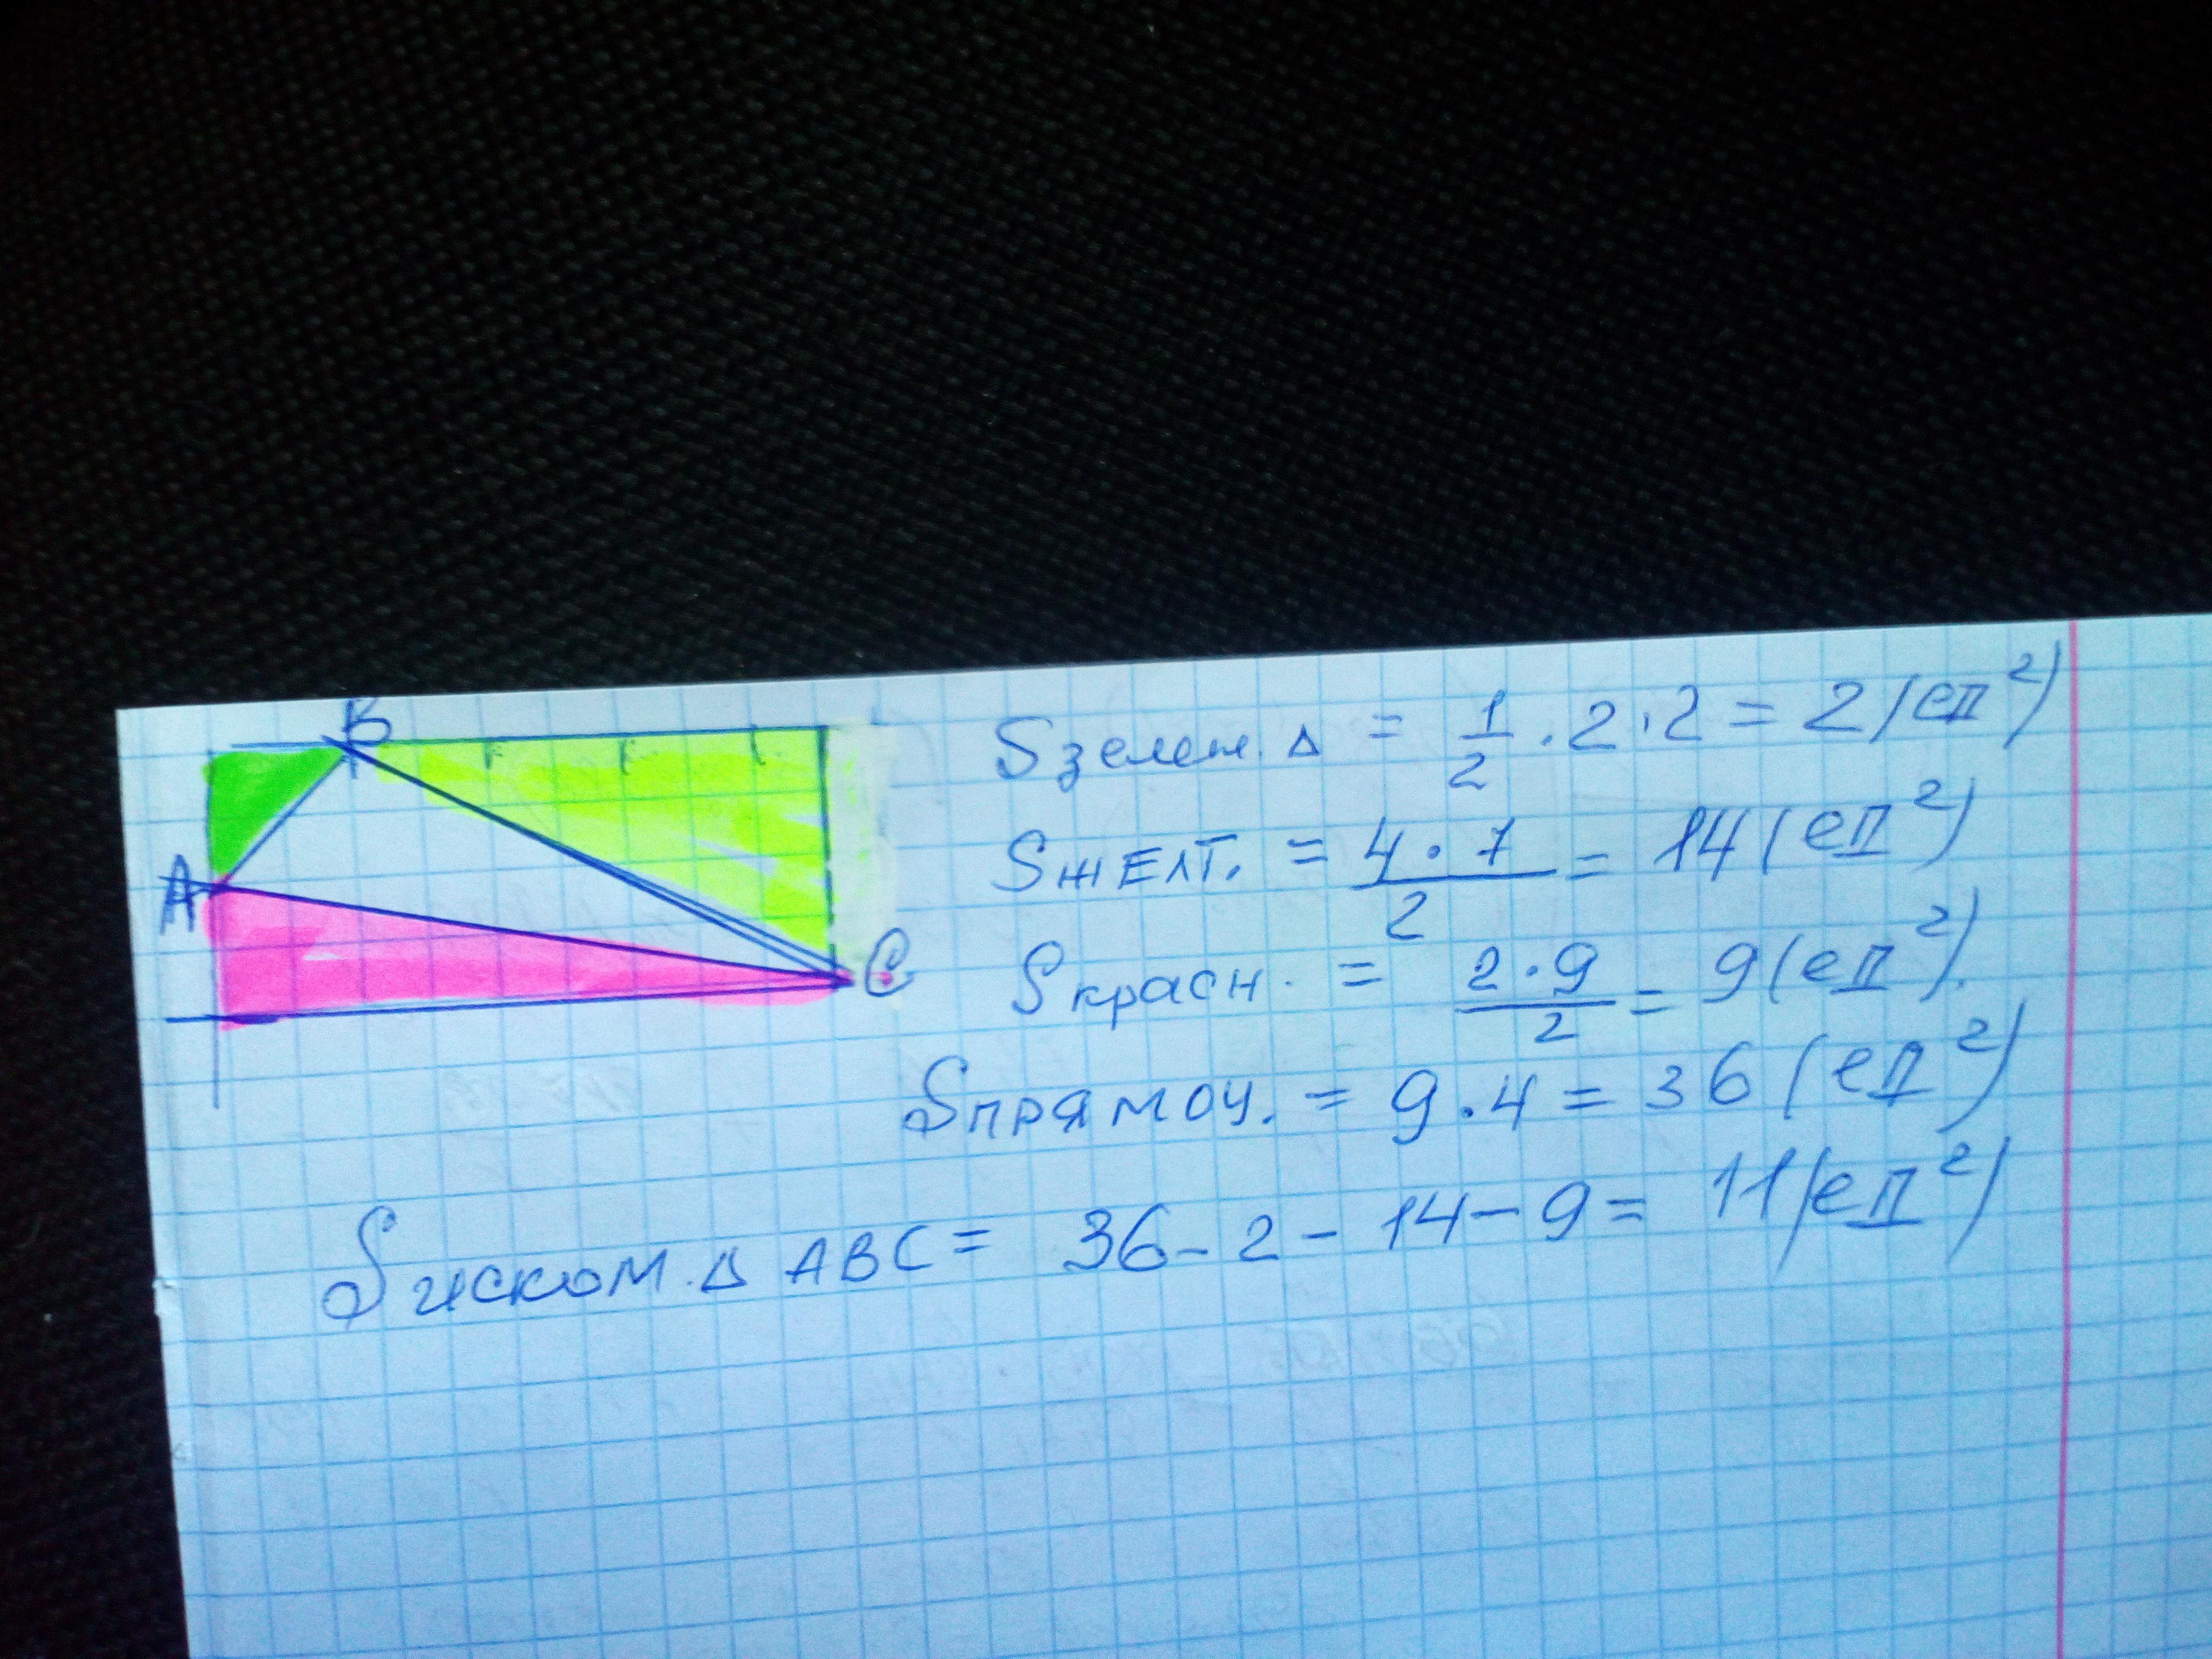 B
A
C
Sзелен. Δ = 1/2 · 2 · 2 = 2 (ед²)
Sжёлт. = 4 · 7/2 = 14 (ед²)
Sкрасн. = 2 · 9/2 = 9 (ед²).
Sпрямоу. = 9 · 4 = 36 (ед²)
Sиском. Δ ABC = 36 - 2 - 14 - 9 = 11 (ед²)